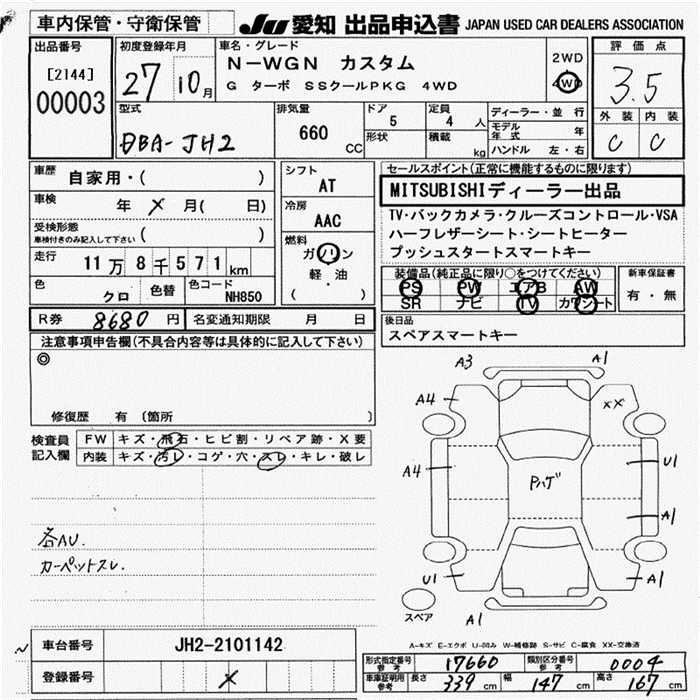 車内保管・守衛保管
JU 愛知 出品申込書 JAPAN USED CAR DEALERS ASSOCIATION
出品番号
[2144]
00003
初度登録年月
27 年 10 月
車名・グレード
N-WGN カスタム
G ターボ SSクールPKG 4WD
2WD
4WD
評価点
3.5
外装 内装
C C
型式
DBA-JH2
排気量
660 CC
ドア
5
形状
定員
4 人
積載
kg
ディーラー・並行
モデル年式 年
ハンドル 左・右
車歴
自家用・( )
車検
年 × 月( 日)
受検形態
車検付きのみ記入して下さい ( )
走行
11万 8千571 km
色
クロ
色替
色コード
NH850
シフト
AT
冷房
AAC
燃料
ガソリン
軽・油
( )
セールスポイント(正常に機能するものに限ります)
MITSUBISHIディーラー出品
TV・バックカメラ・クルーズコントロール・VSA
ハーフレザーシート・シートヒーター
プッシュスタートスマートキー
装備品(純正品に限り○をつけてください)
PS PW エアB AW
SR ナビ TV カワシート
新車保証書
有・無
R券 8680 円
名変通知期限 月 日
後日品
スペアスマートキー
注意事項申告欄(不具合内容等は具体的に記入して下さい)
◎
修復歴 有 (箇所 )
検査員記入欄
FW キズ・飛石・ヒビ割・リペア跡・X要
内装 キズ・汚レ・コゲ・穴・スレ・キレ・破レ
各AU.
カーペットスレ.
A3 A1
A4 ××
A4 U1
Pハゲ
A1
U1 A1
A1
スペア
A-キズ E-エクボ U-凹み W-補修跡 S-サビ C-腐食 XX-交換済
車台番号 JH2-2101142
登録番号 ×
形式指定番号 参考 17660 類別区分番号 参考 0004
車庫証明用 参考 長さ 339 cm 幅 147 cm 高さ 167 cm